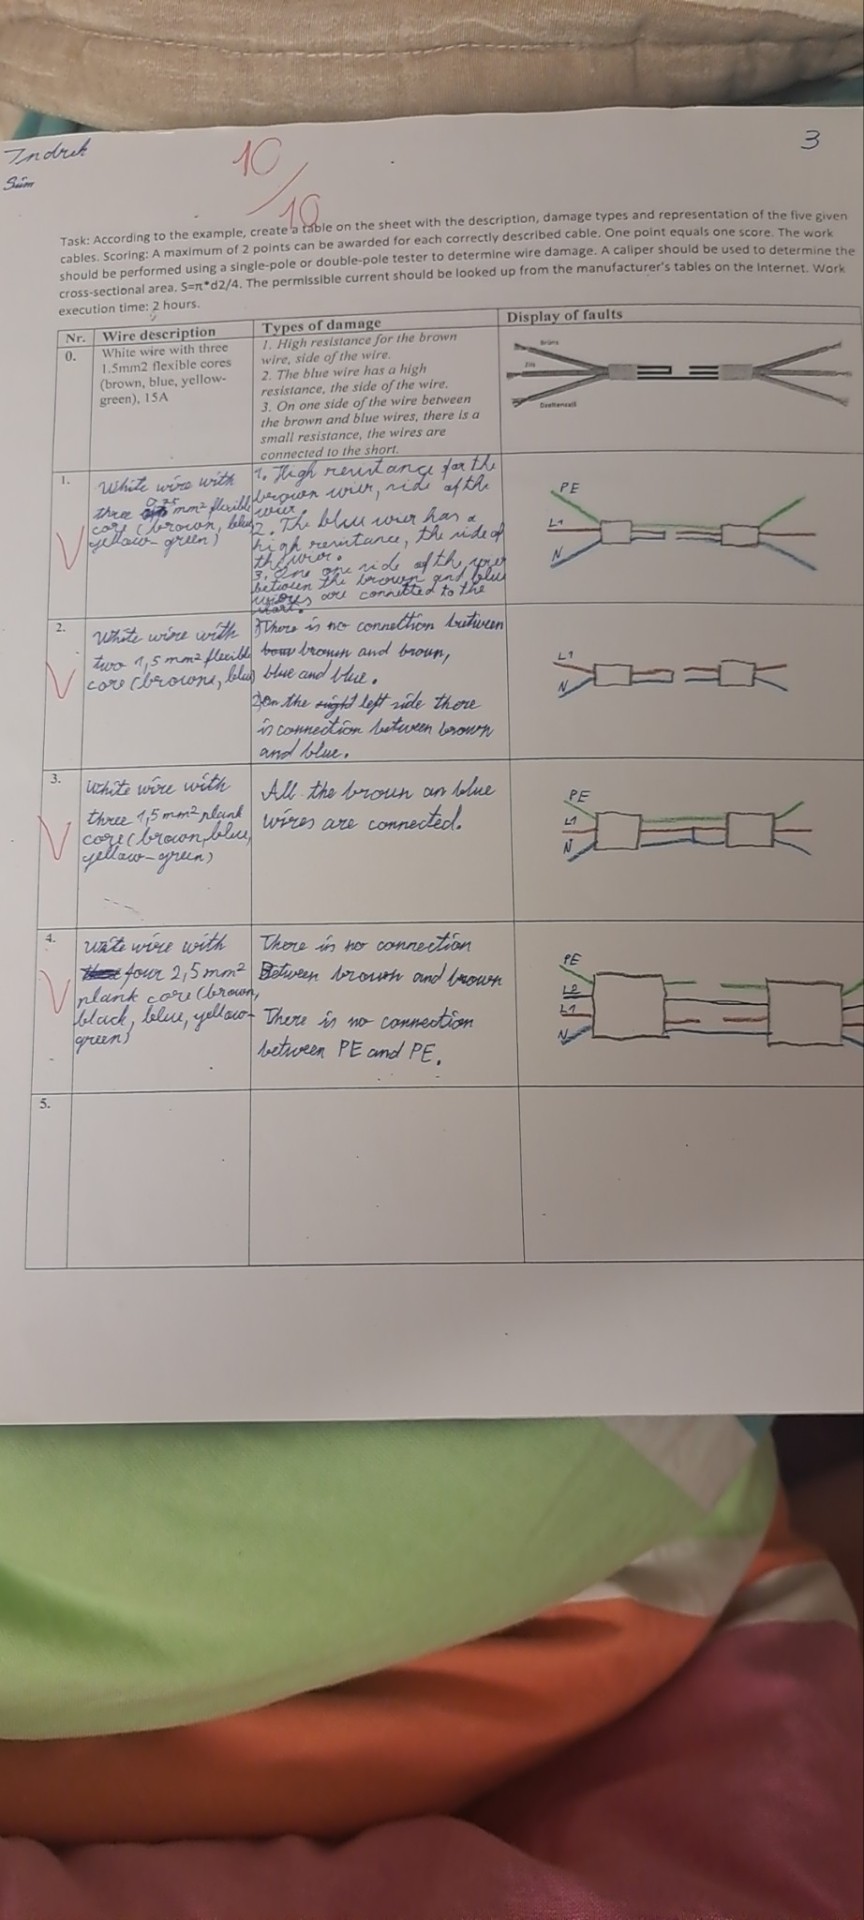 Indrek
Siim
10/10
3
Task: According to the example, create a table on the sheet with the description, damage types and representation of the five given
cables. Scoring: A maximum of 2 points can be awarded for each correctly described cable. One point equals one score. The work
should be performed using a single-pole or double-pole tester to determine wire damage. A caliper should be used to determine the
cross-sectional area. S=π*d2/4. The permissible current should be looked up from the manufacturer's tables on the Internet. Work
execution time: 2 hours.
Nr. Wire description Types of damage Display of faults
0.
White wire with three
1.5mm2 flexible cores
(brown, blue, yellow-
green), 15A
1. High resistance for the brown
wire, side of the wire.
2. The blue wire has a high
resistance, the side of the wire.
3. On one side of the wire between
the brown and blue wires, there is a
small resistance, the wires are
connected to the short.
1.
White wire with
three 0,75 mm² flexible
core (brown, blue,
yellow-green)
1. High resistance for the
brown wier, side of the
wier.
2. The blue wier has a
high resistance, the side of
the wier.
3. One one side of the wier
between the brown and blue
wires are connected to the
short.
PE
L1
N
2.
White wire with
two 1,5 mm² flexible
core (browne, blue)
1) There is no connection between
brown and broun,
blue and blue.
2) On the left side there
is connection between brown
and blue.
L1
N
3.
White wire with
three 1,5 mm² plank
core (brown, blue,
yellow-green)
All the broun an blue
wires are connected.
PE
L1
N
4.
wite wire with
four 2,5 mm²
plank core (brown,
black, blue, yellow-
green)
There is no connection
Between brown and brown
There is no connection
between PE and PE.
PE
L2
L1
N
5.